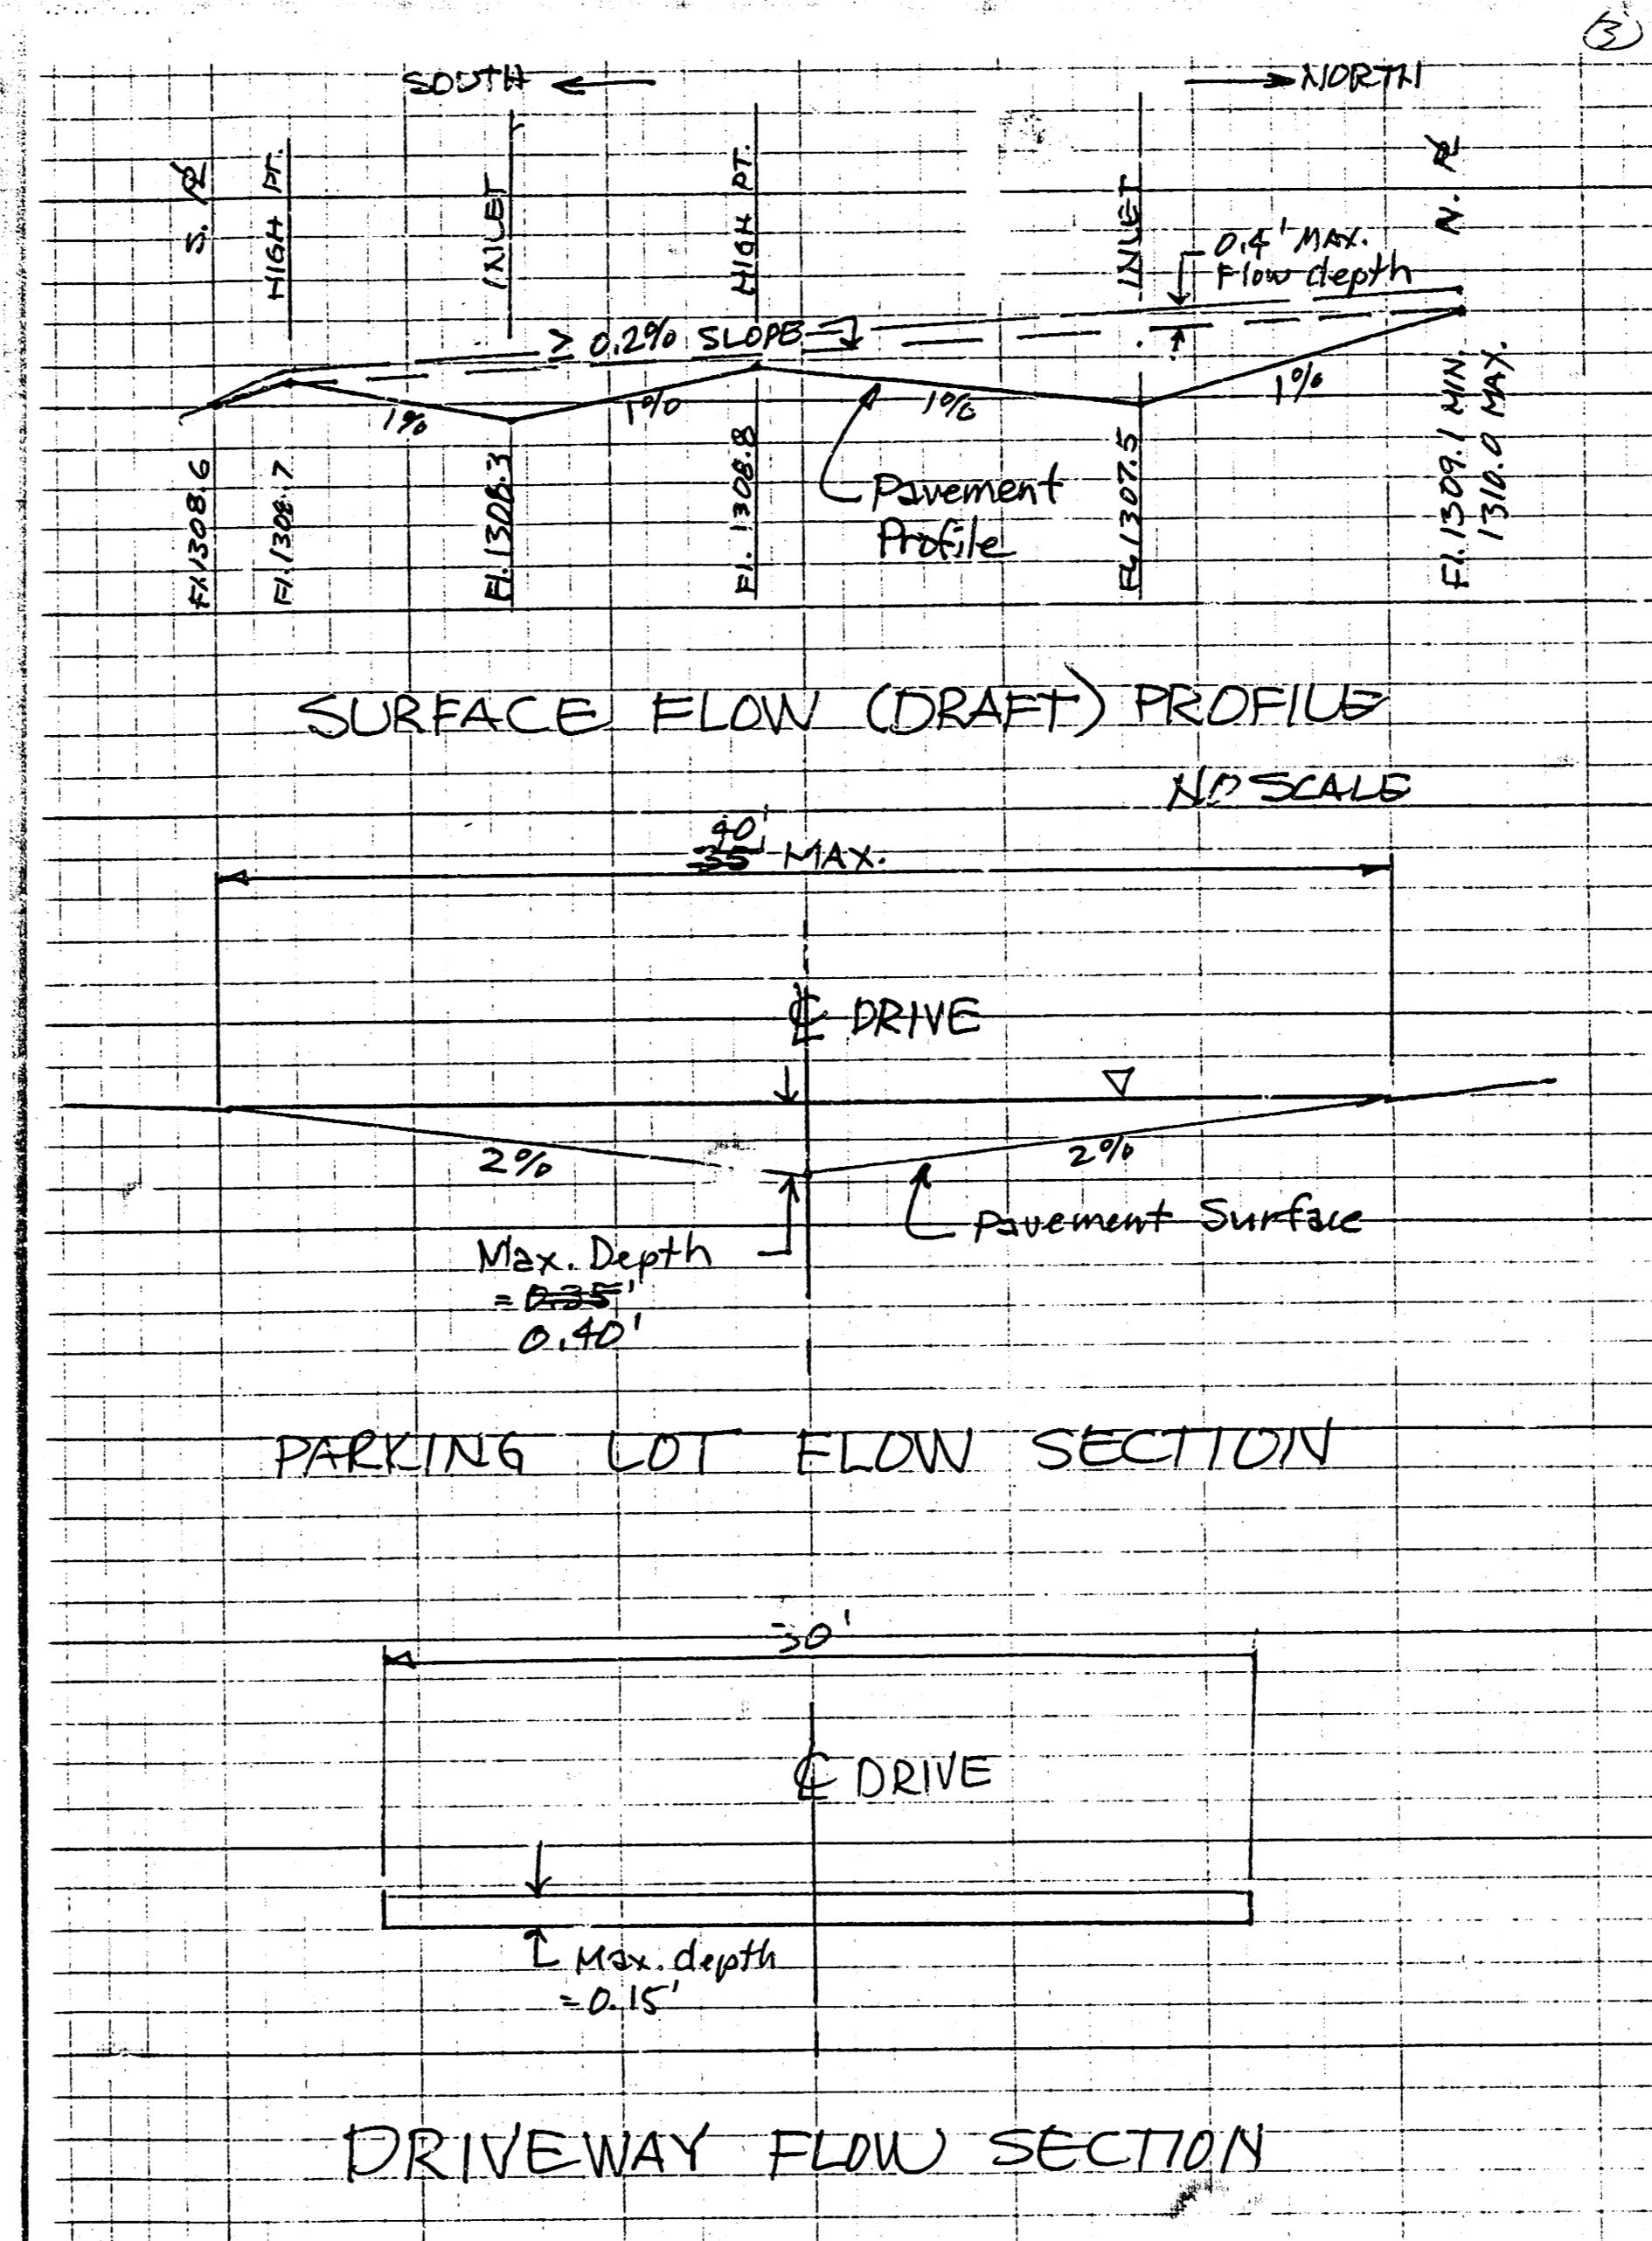 3
SOUTH ← → NORTH
S. PL
HIGH PT.
INLET
HIGH PT.
INLET
N. PL
0.4' MAX.
Flow depth
> 0.2% SLOPE
1%
1%
1%
1%
Pavement
Profile
El. 1308.6
El. 1308.7
El. 1308.3
El. 1308.8
El. 1307.5
El. 1309.1 MIN.
1310.0 MAX.
SURFACE FLOW (DRAFT) PROFILE
NO SCALE
40'
35' MAX.
℄ DRIVE
2%
2%
Pavement Surface
Max. Depth
= 0.35'
0.40'
PARKING LOT FLOW SECTION
30'
℄ DRIVE
Max. depth
= 0.15'
DRIVEWAY FLOW SECTION